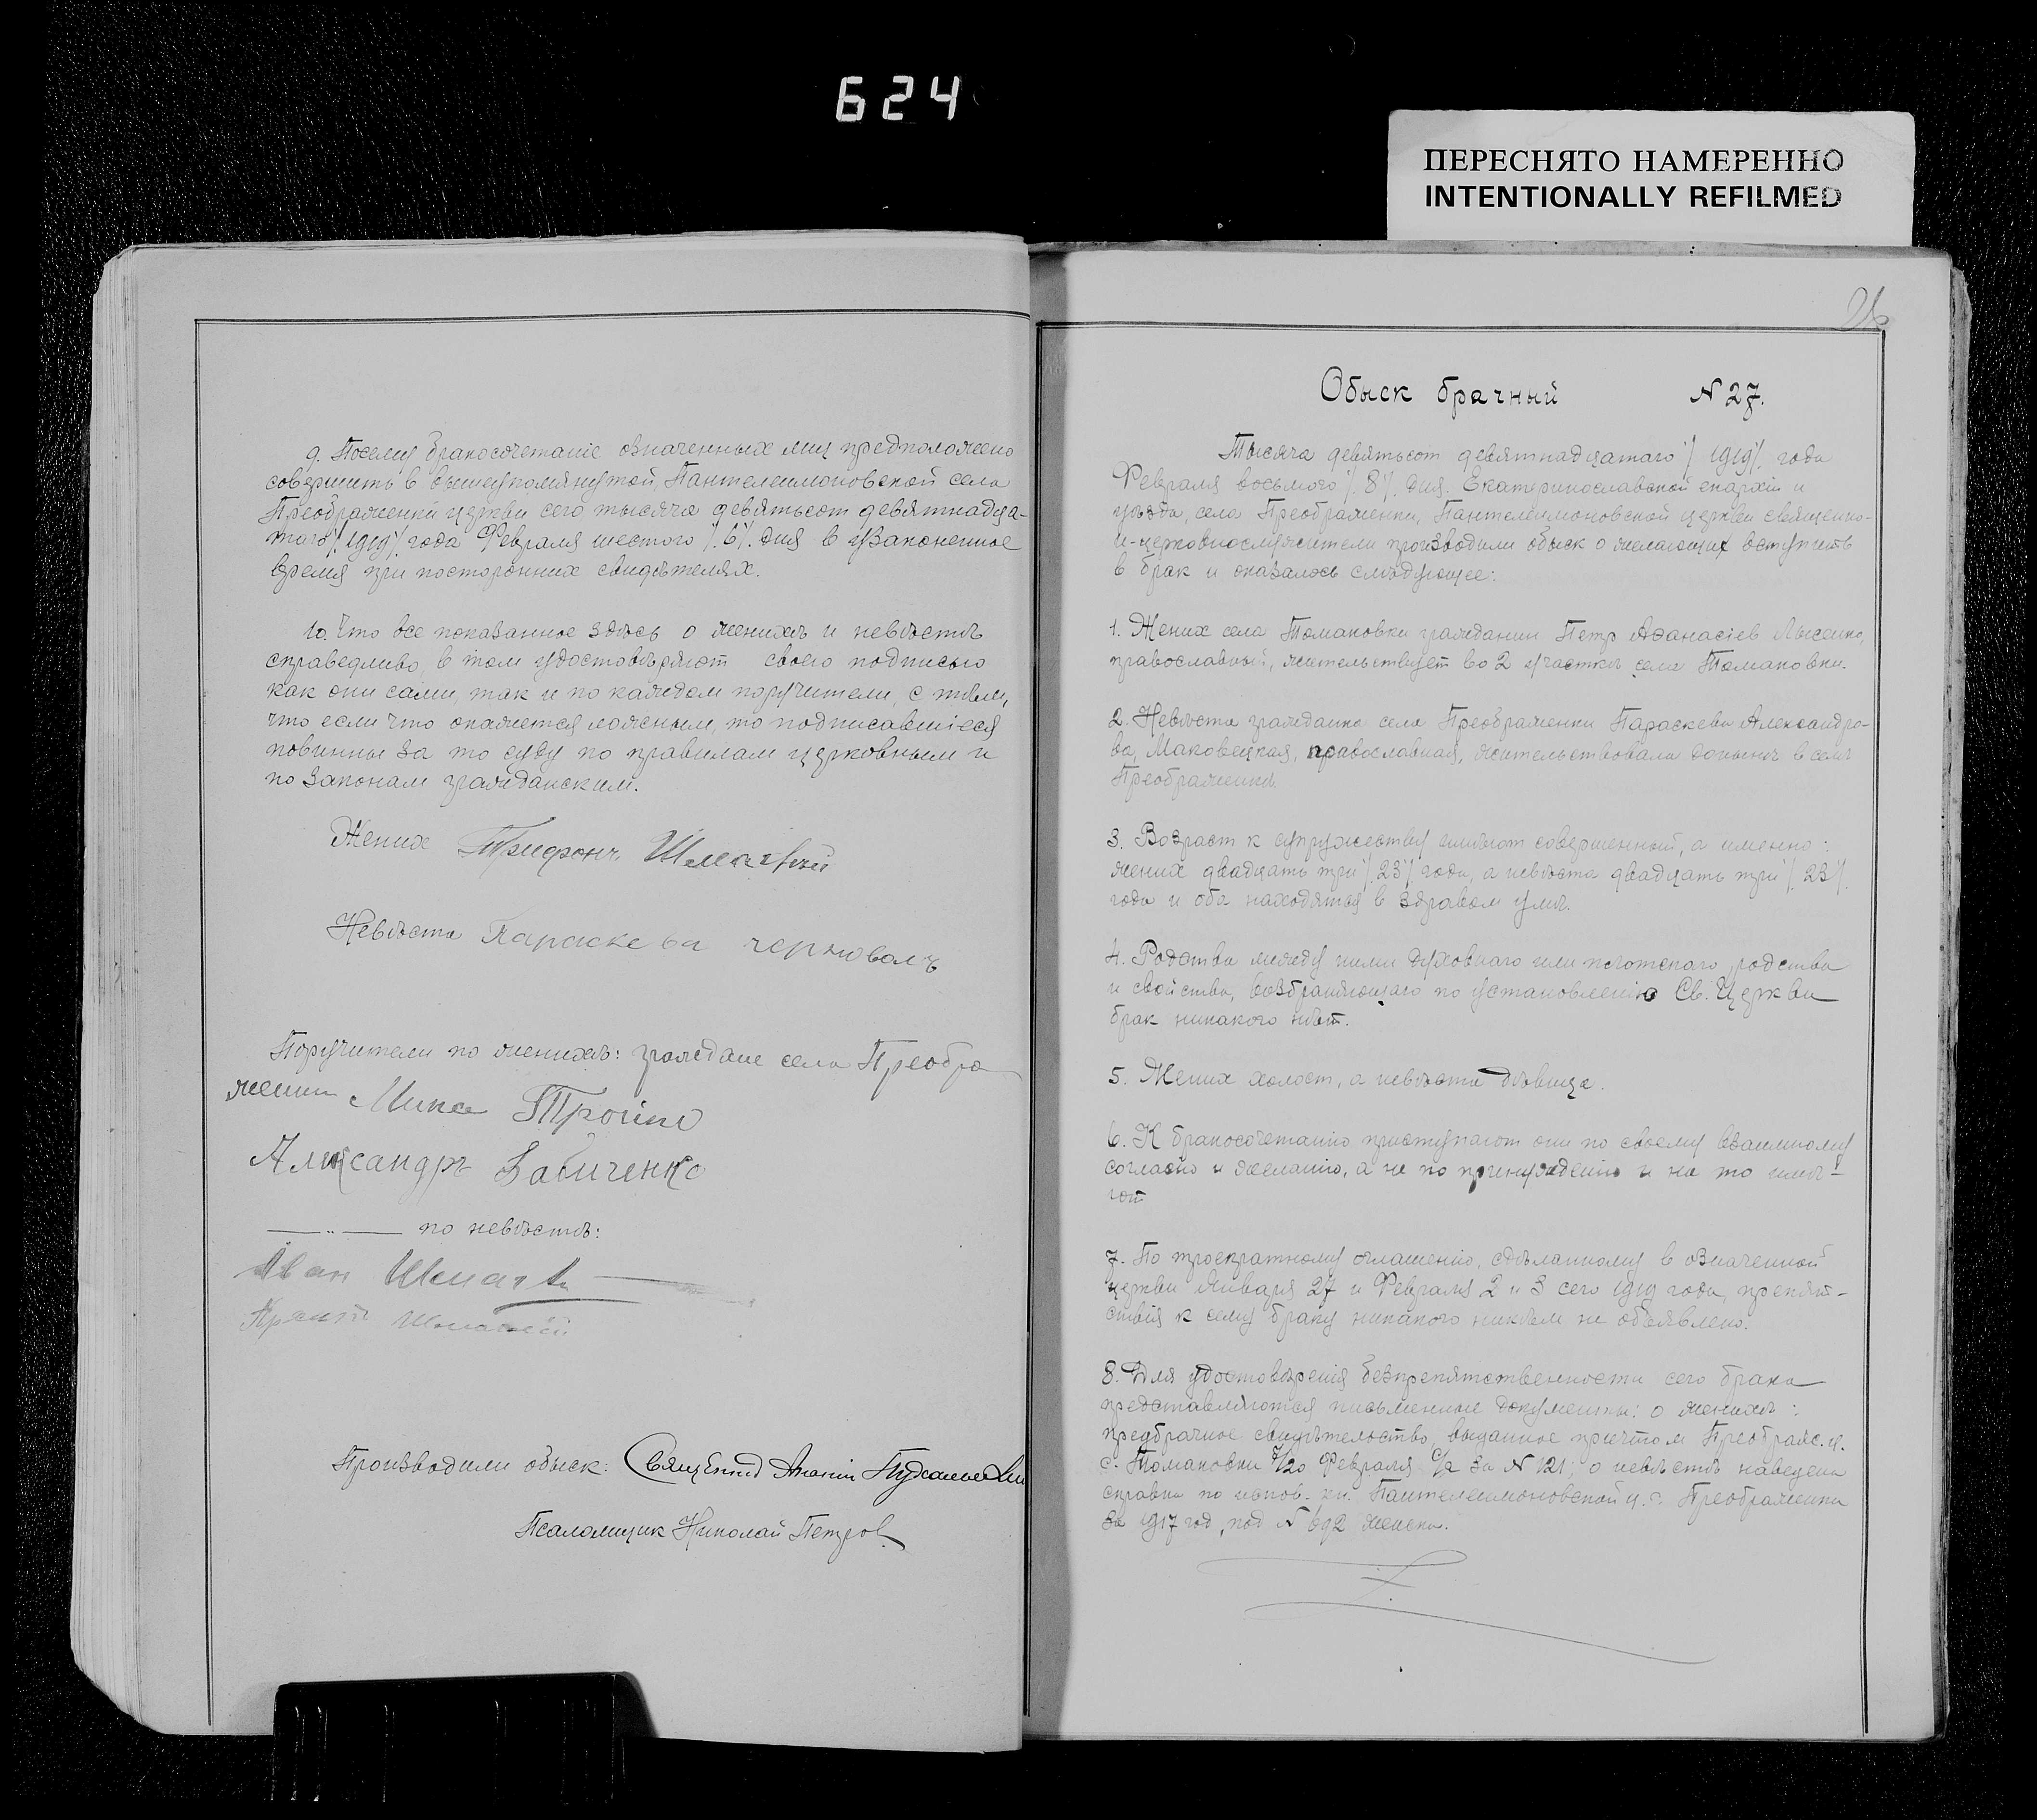 624
ПЕРЕСНЯТО НАМЕРЕННО
INTENTIONALLY REFILMED
9. Посему бракосочетанiе означенных лиц предположено
совершить в вышеупомянутой, Пантелеимоновской села
Преображенки церкви сего тысяча девятьсот девятнадца-
таго /1919/ года Февраля шестого /6/ дня в узаконенное
время при посторонних свидѣтелях.
10. Что все показанное здѣсь о женихѣ и невѣстѣ
справедливо, в том удостовѣряют своею подписью
как они сами, так и по каждом поручители, с тѣм,
что если что окажется ложным, то подписавшiеся
повинны за то суду по правилам церковным и
по законам гражданским.
Жених Трифонъ
Невѣста Параскева
Поручители по женихѣ: граждане села Преобра
женки
Александръ
—„— по невѣстѣ:
Иван
Производили обыск: Священник
Псаломщик Николай Петров
26
Обыск брачный N 27.
Тысяча девятьсот девятнадцатаго /1919/ года
Февраля восьмого /8/ дня. Екатеринославской епархiи и
уѣзда, села Преображенки, Пантелеимоновской церкви священно-
и-церковнослужители производили обыск о желающих вступить
в брак и оказалось слѣдующее:
1. Жених села Томаковки гражданин Петр Аѳанасiев Лысенко,
православный, жительствует во 2 участкѣ села Томаковки.
2. Невѣста гражданка села Преображенки Параскева Александро-
ва, Маковецкая, православная, жительствовала донынѣ в селѣ
Преображенкѣ.
3. Возраст к супружеству имѣют совершенный, а именно:
жених двадцать три /23/ года, а невѣста двадцать три /23/
года и оба находятся в здравом умѣ.
4. Родства между ними духовнаго или плотскаго родства
и свойства, возбраняющаго по установленiю Св. Церкви
брак никакого нѣт.
5. Жених холост, а невѣста дѣвица.
6. К бракосочетанiю приступают они по своему взаимному
согласiю и желанiю, а не по принужденiю и на то имѣ-
ют
7. По троекратному оглашенiю, сдѣланному в означенной
церкви Января 27 и Февраля 2 и 3 сего 1919 года, препят-
ствiя к сему браку никакого никѣм не объявлено.
8. Для удостовѣренiя безпрепятственности сего брака
представляются письменные документы: о женихѣ:
предбрачное свидѣтельство, выданное причтом Преображ. ц.
с. Томаковки 7/20 Февраля с/г за N 121; о невѣстѣ наведена
справка по испов. кн. Пантелеимоновской ц. с. Преображенки
за 1917 год, под N 692 женска.